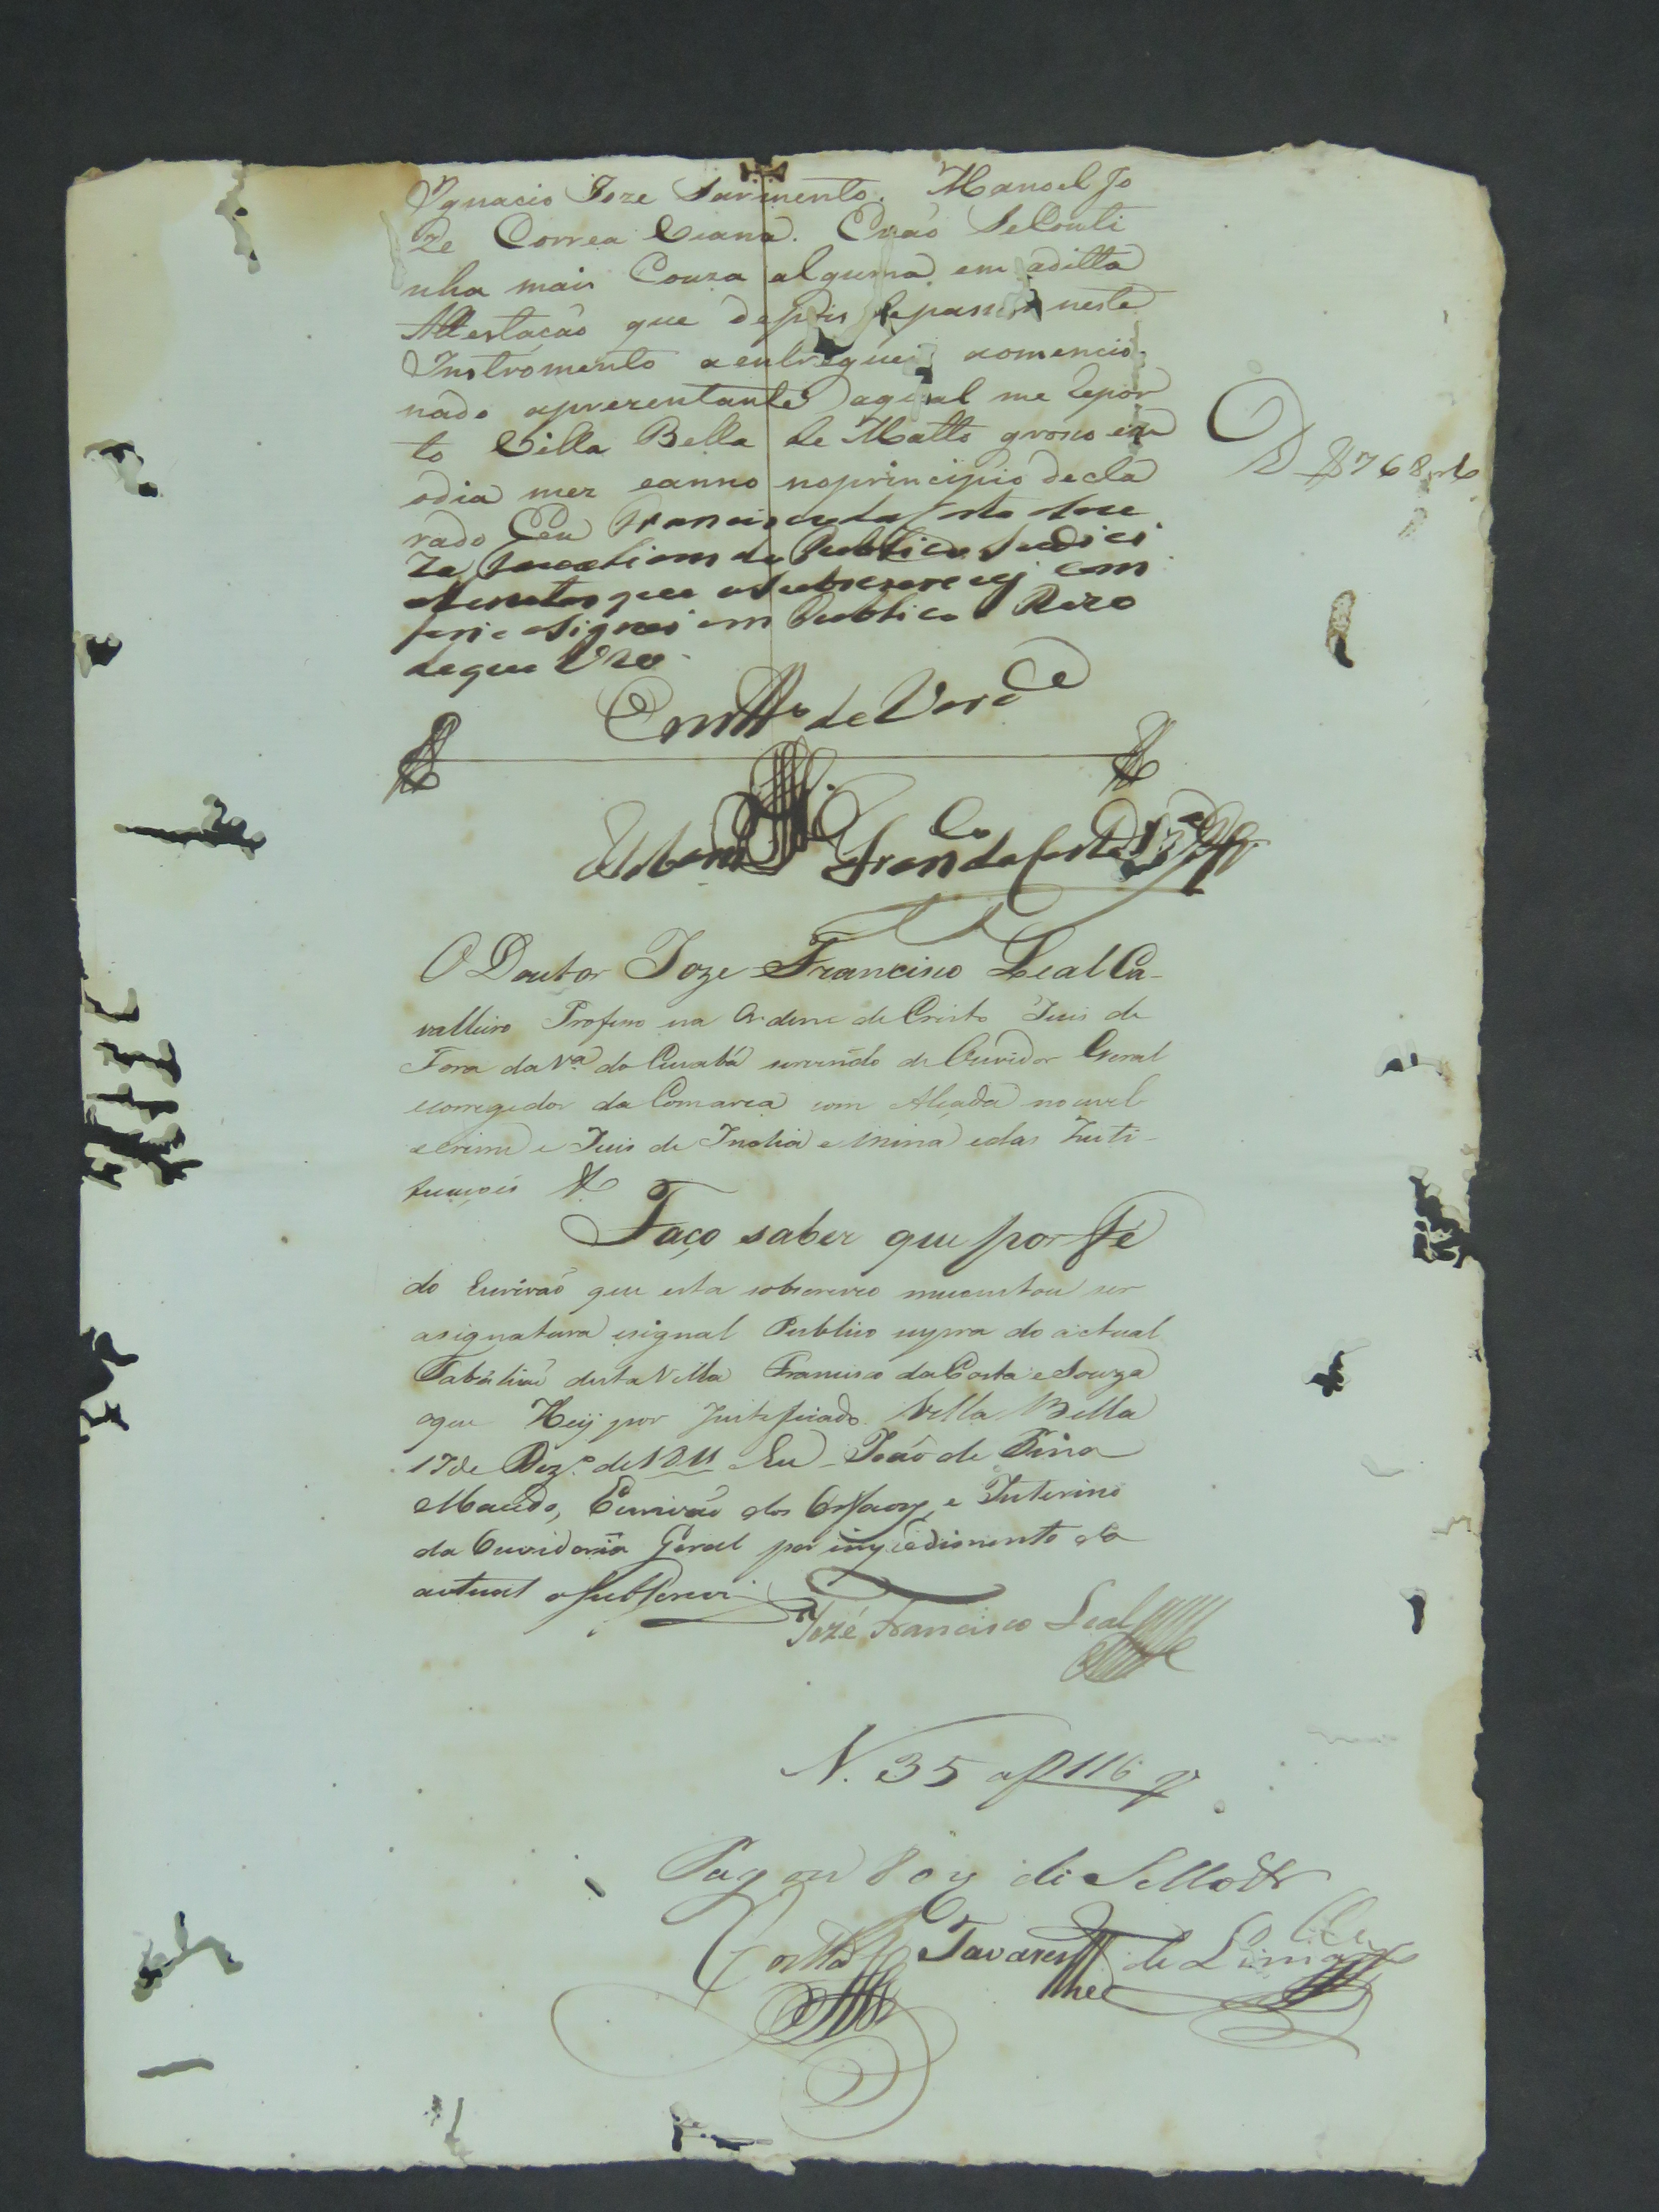 Ygnacio Joze Sarmento. Manoel Jo
ze Correa Viana. Enaõ Seconti
nha mais Couza alguma em aditta
Attestaçaõ que depois depassar neste
Instromento a entreguei aomencio
nado aprezentante aqual me repor
to Villa Bella de Matto groso em
odia mez eanno noprincipio decla
rado E eu Francisco da Costa Sou
za Tabaliam do Publico Judici
al enotas que osubscrevej com
feri e asignei em Publico e Razo
de que Uzo
Em Ttº de Verde
D 768 rs
Franco da Costa Sza
O Doutor Joze Francisco Leal Ca-
valleiro Profeso na Ordem de Cristo Juis de
Fora da Va do Cuiabá servindo de Ouvidor Geral
ecorregedor da Comarca com Alçada nocivel
ecrime e Juis de India e Mina e das Justi-
ficaçoĩs &
Faço saber que por Fé
do Escrivaõ que esta sobscreveo meconstou ser
asignatura esignal Publico supra do actual
Tabaliaõ desta Villa Francisco da Costa e Souza
oque Hey por Justificado Villa Bella
17 de Dezº de 1811 Eu Joaõ de Pina
Macedo, Escrivaõ dos Orfaons, e Interino
da Ouvidoria Geral por impedimento do
actual o subscrevi
José Francisco Leal
N. 35 af 116 v
Pagou 80 rs de Sello &
Costa Tavares de Lima